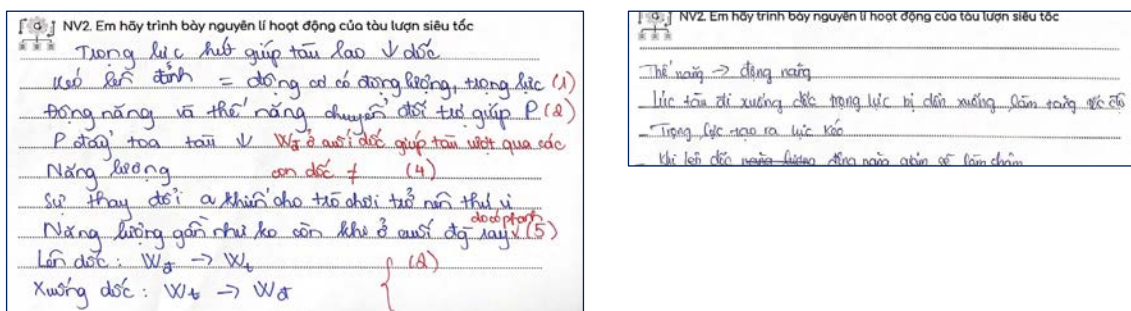 NV2. Em hãy trình bày nguyên lí hoạt động của tàu lượn siêu tốc
Trọng lực hút giúp tàu lao ↓ dốc
kéo lên đỉnh = động cơ có động lượng, trọng lực (1)
Động năng và thế năng chuyển đổi trợ giúp P (2)
P đẩy toa tàu ↓ Wđ ở cuối dốc giúp tàu vượt qua các
Năng lượng con dốc ≠ (4)
Sự thay đổi a khiến cho trò chơi trở nên thú vị
do có phanh
Năng lượng gần như ko còn khi ở cuối đg ray √ (5)
Lên dốc: Wđ → Wt { (2)
Xuống dốc: Wt → Wđ
NV2. Em hãy trình bày nguyên lí hoạt động của tàu lượn siêu tốc
Thế năng → động năng
lúc tàu đi xuống dốc trọng lực bị dồn xuống, làm tăng tốc độ
Trọng lực tạo ra lực kéo
Khi lên dốc động năng giảm sẽ làm chậm